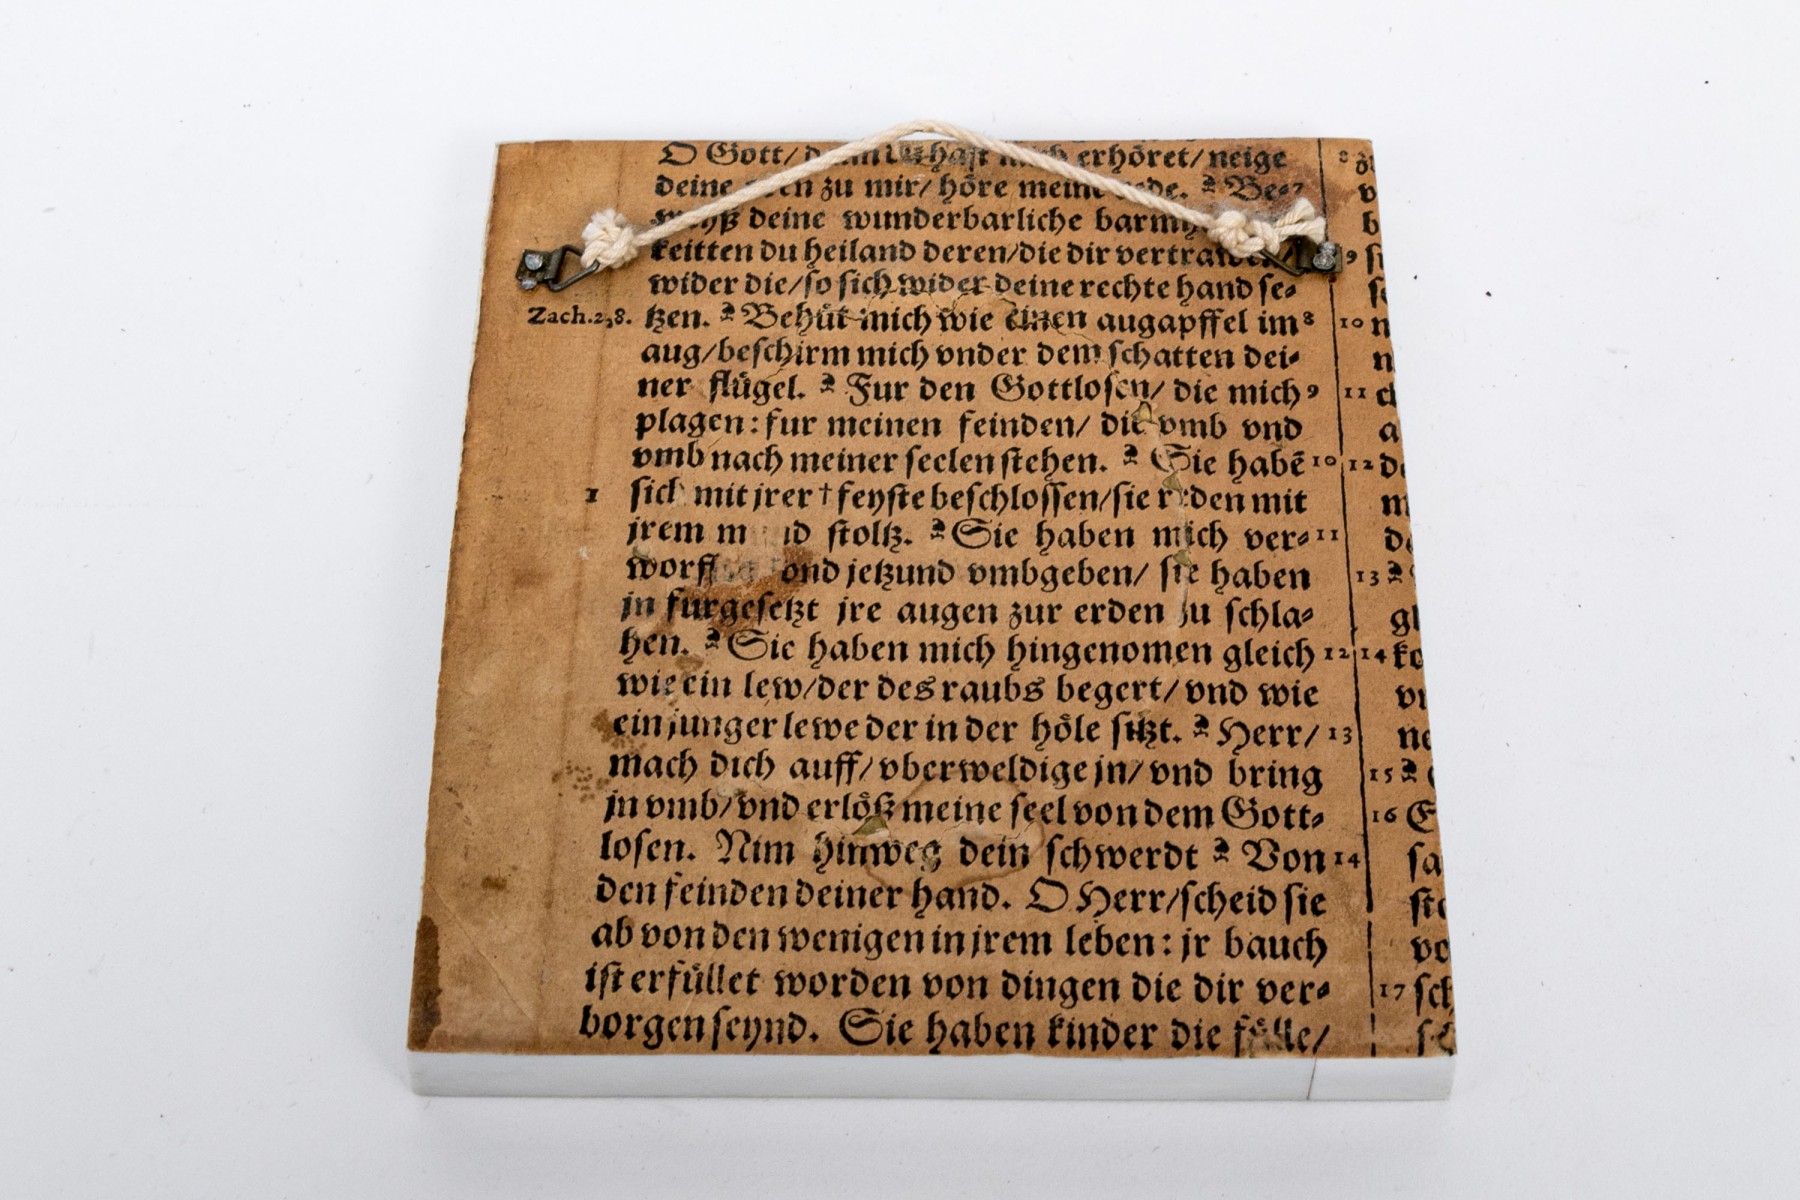 O Gott/ hast mich erhöret/ neige
deine zu mir/ höre meine rede. Be⸗ 7
weyß deine wunderbarliche
keitten du heiland deren/ die dir
wider die/ so sich wider deine rechte hand se⸗
Zach.2,8. tzen. Behüt mich wie einen augapffel im 8
aug/ beschirm mich vnder dem schatten dei⸗
ner flügel. Fur den Gottlosen/ die mich 9
plagen: fur meinen feinden/ die vmb vnd
vmb nach meiner seelen stehen. Sie habē 10
sich mit jrer † feyste beschlossen/ sie reden mit
jrem stoltz. Sie haben mich ver⸗ 11
vnd jetzund vmbgeben/ sie haben
jn furgesetzt jre augen zur erden zu schla⸗
hen. Sie haben mich hingenomen gleich 12
wie ein lew/ der des raubs begert/ vnd wie
ein junger lewe der in der höle sitzt. Herr/ 13
mach dich auff/ vberweldige jn/ vnd bring
jn vmb/ vnd erlöß meine seel von dem Gott⸗
losen. Nim hinweg dein schwerdt Von 14
den feinden deiner hand. O Herr/ scheid sie
ab von den wenigen in jrem leben: jr bauch
ist erfüllet worden von dingen die dir ver⸗
borgen seynd. Sie haben kinder die fälle/
8
9
10
11
12
13
14
15
16
17